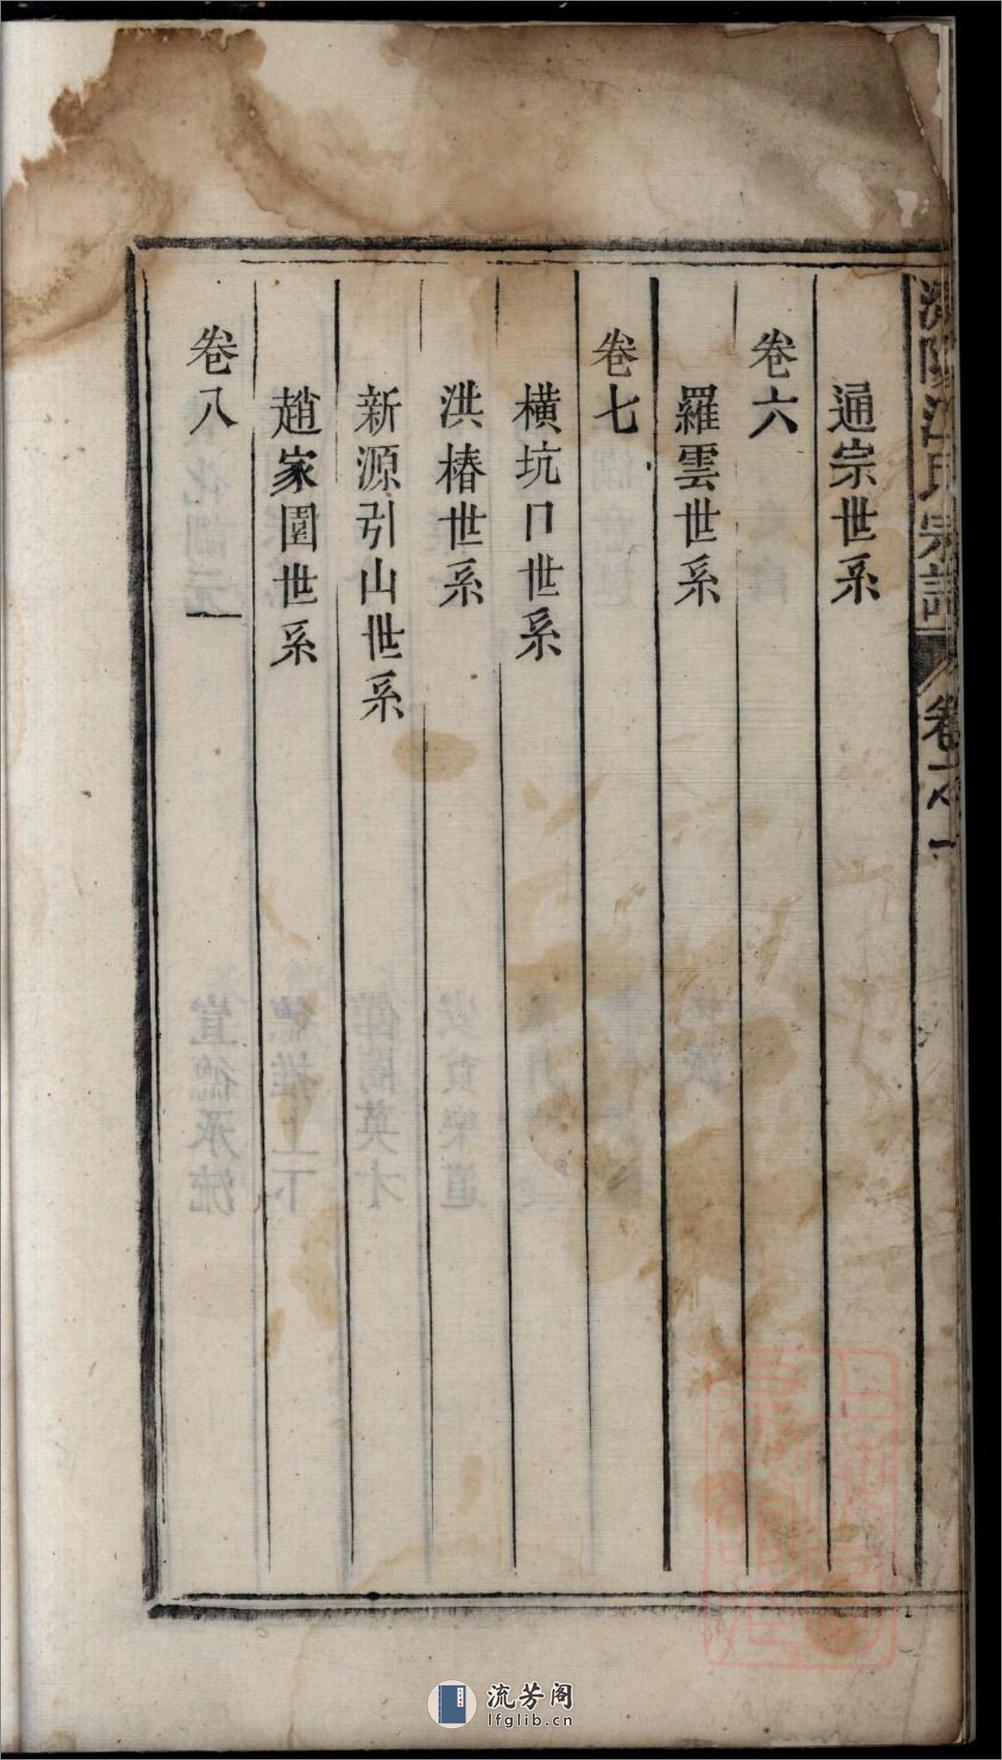 濟陽江氏宗譜 卷之一
通宗世系
卷六
羅雲世系
卷七
橫坑口世系
洪椿世系
新源引山世系
趙家園世系
卷八
流芳阁
lfglib.cn